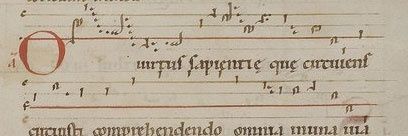 O uirtus sapientię quę circuiens
circuisti comprehendendo omnia in una uia